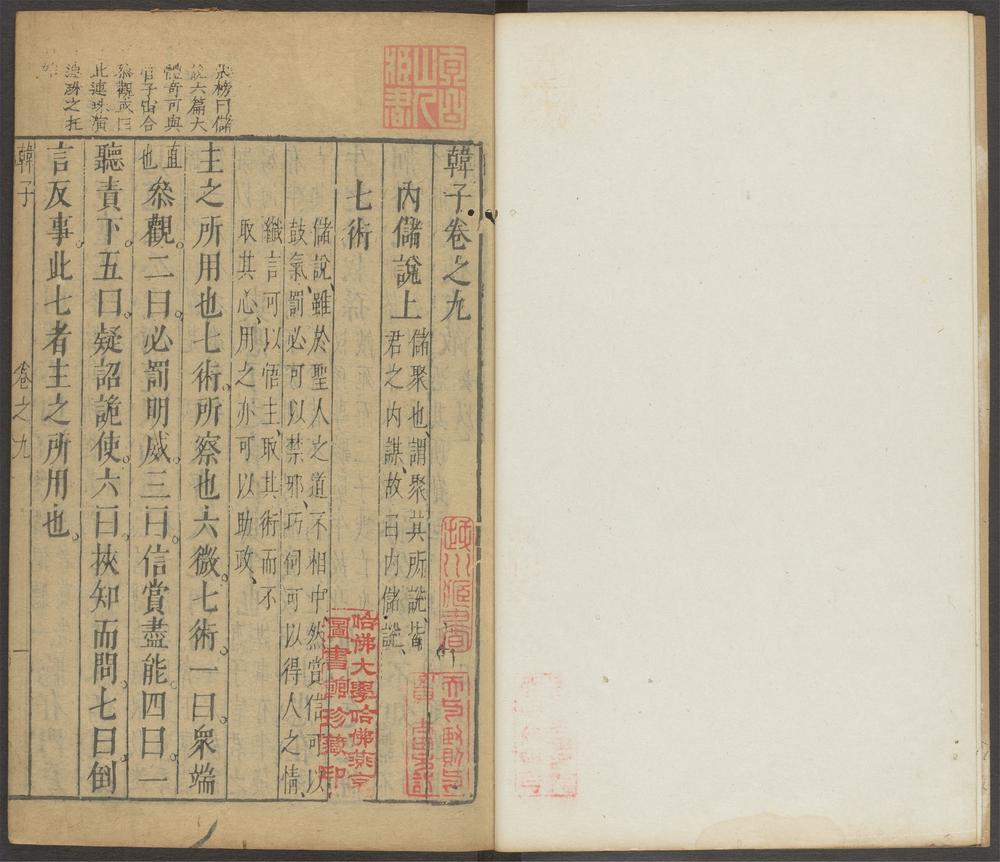 韓子卷之九
內儲說上
儲聚也謂聚其所說皆
君之內謀故曰內儲說
七術
儲說雖於聖人之道不相中然賞信可以
鼓氣罰必可以禁邪巧伺可以得人之情
纖言可以悟主取其術而不
取其心用之亦可以助政
主之所用也七術所察也六微七術一曰衆端
直
也
叅觀二曰必罰明威三曰信賞盡能四曰一
聽責下五曰疑詔詭使六曰挾知而問七曰倒
言反事此七者主之所用也
韓子 卷之九 一
曰儲
說六篇大
體奇可與
管子宙合
叅觀或曰
此連珠
之托
哈佛大學哈佛燕京
圖書館珍藏印